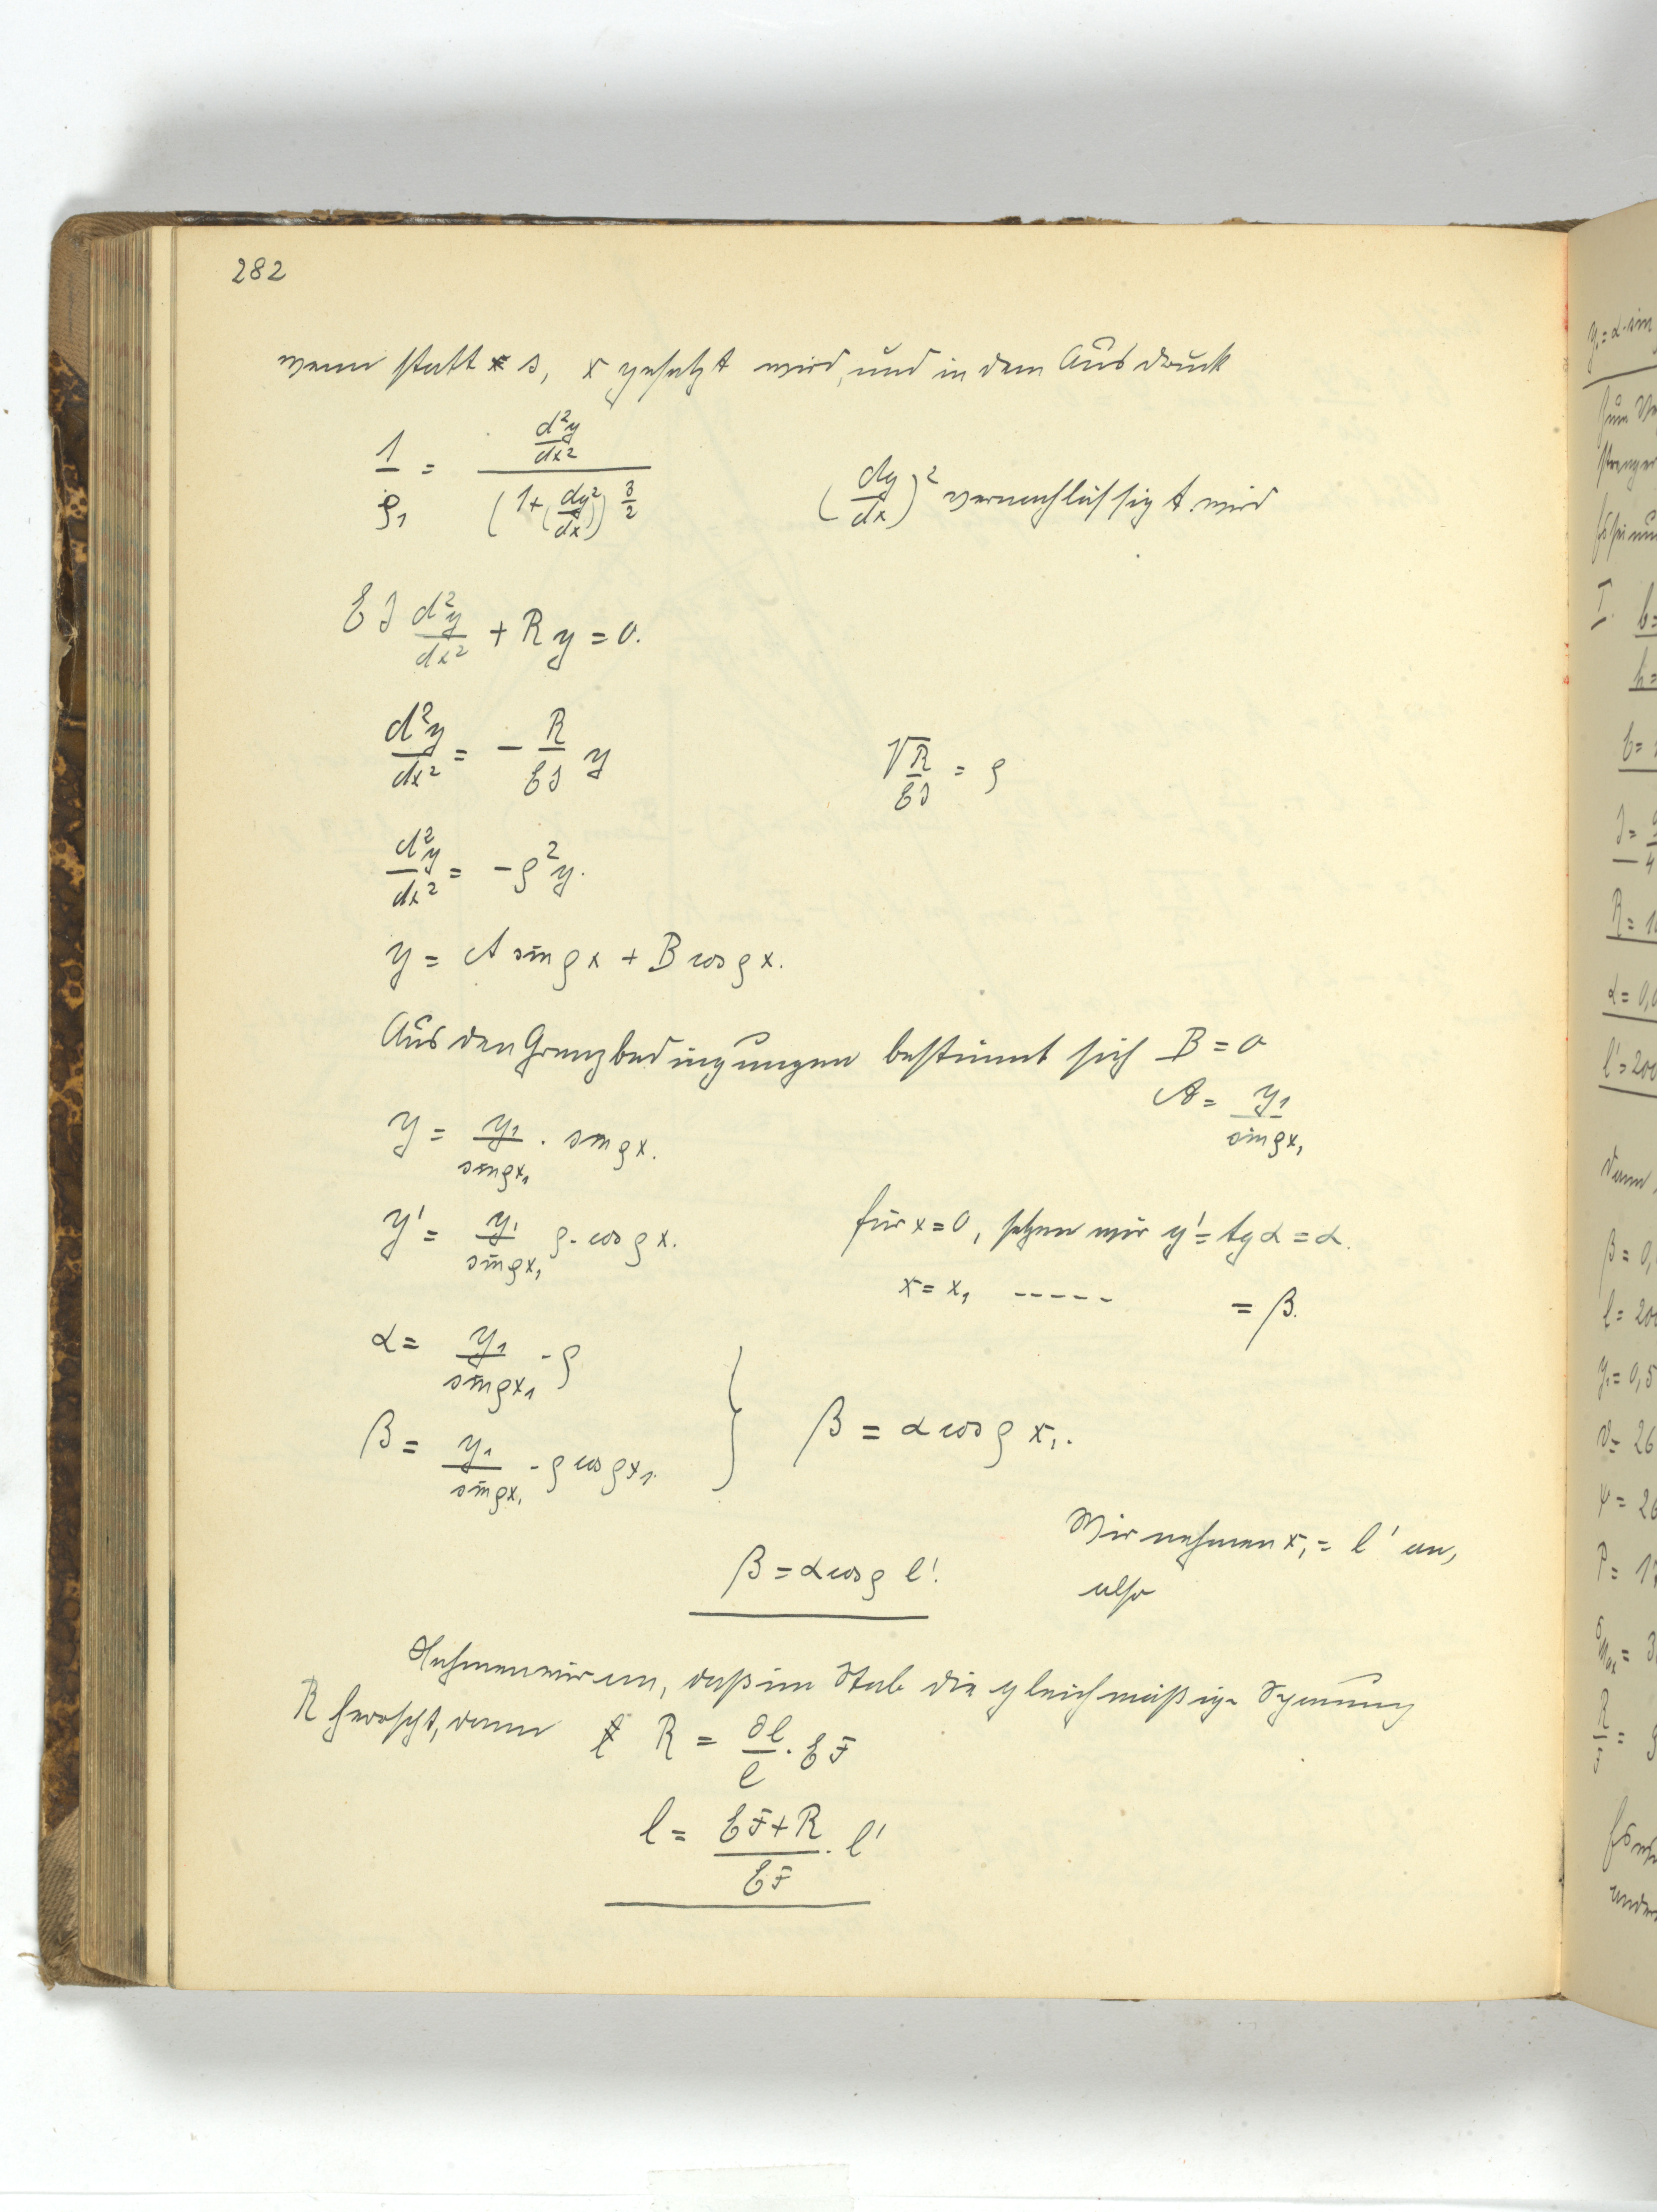 282
wenn statt s, x gesetzt wird, und in dem Ausdruck
1/ρ₁ = (d²y/dx²) / (1+(dy/dx)²)^(3/2)   (dy/dx)² vernachlässigt wird
EJ d²y/dx² + Ry = 0.
d²y/dx² = - R/EJ y   √R/EJ = ρ
d²y/dx² = -ρ²y.
y = A sin ρx + B cos ρx.
Aus den Grenzbedingungen bestimmt sich B = 0
A = y₁/sin ρx₁
y = y₁/sin ρx₁ · sin ρx.
y' = y₁/sin ρx₁ ρ · cos ρx.   für x = 0, setzen wir y' = tg α = α.
x = x₁ ----- = β.
α = y₁/sin ρx₁ · ρ
β = y₁/sin ρx₁ · ρ cos ρx₁.   } β = α cos ρ x₁.
Wir nehmen x₁ = l' an,
also
β = α cos ρ l'.
Nehmen wir an, daß im Stab die gleichmäßige Spannung
R herrscht, dann R = ∂l/l · EF
l = (EF+R)/EF · l'
y₁ = α · sin
Zum
I. b =
h =
E =
J =
R = 1
α = 0,0
l' = 200
dann
β = 0,
l = 200
y₁ = 0,5
v = 26
ψ = 26
P = 17
σmax = 3
R/F =